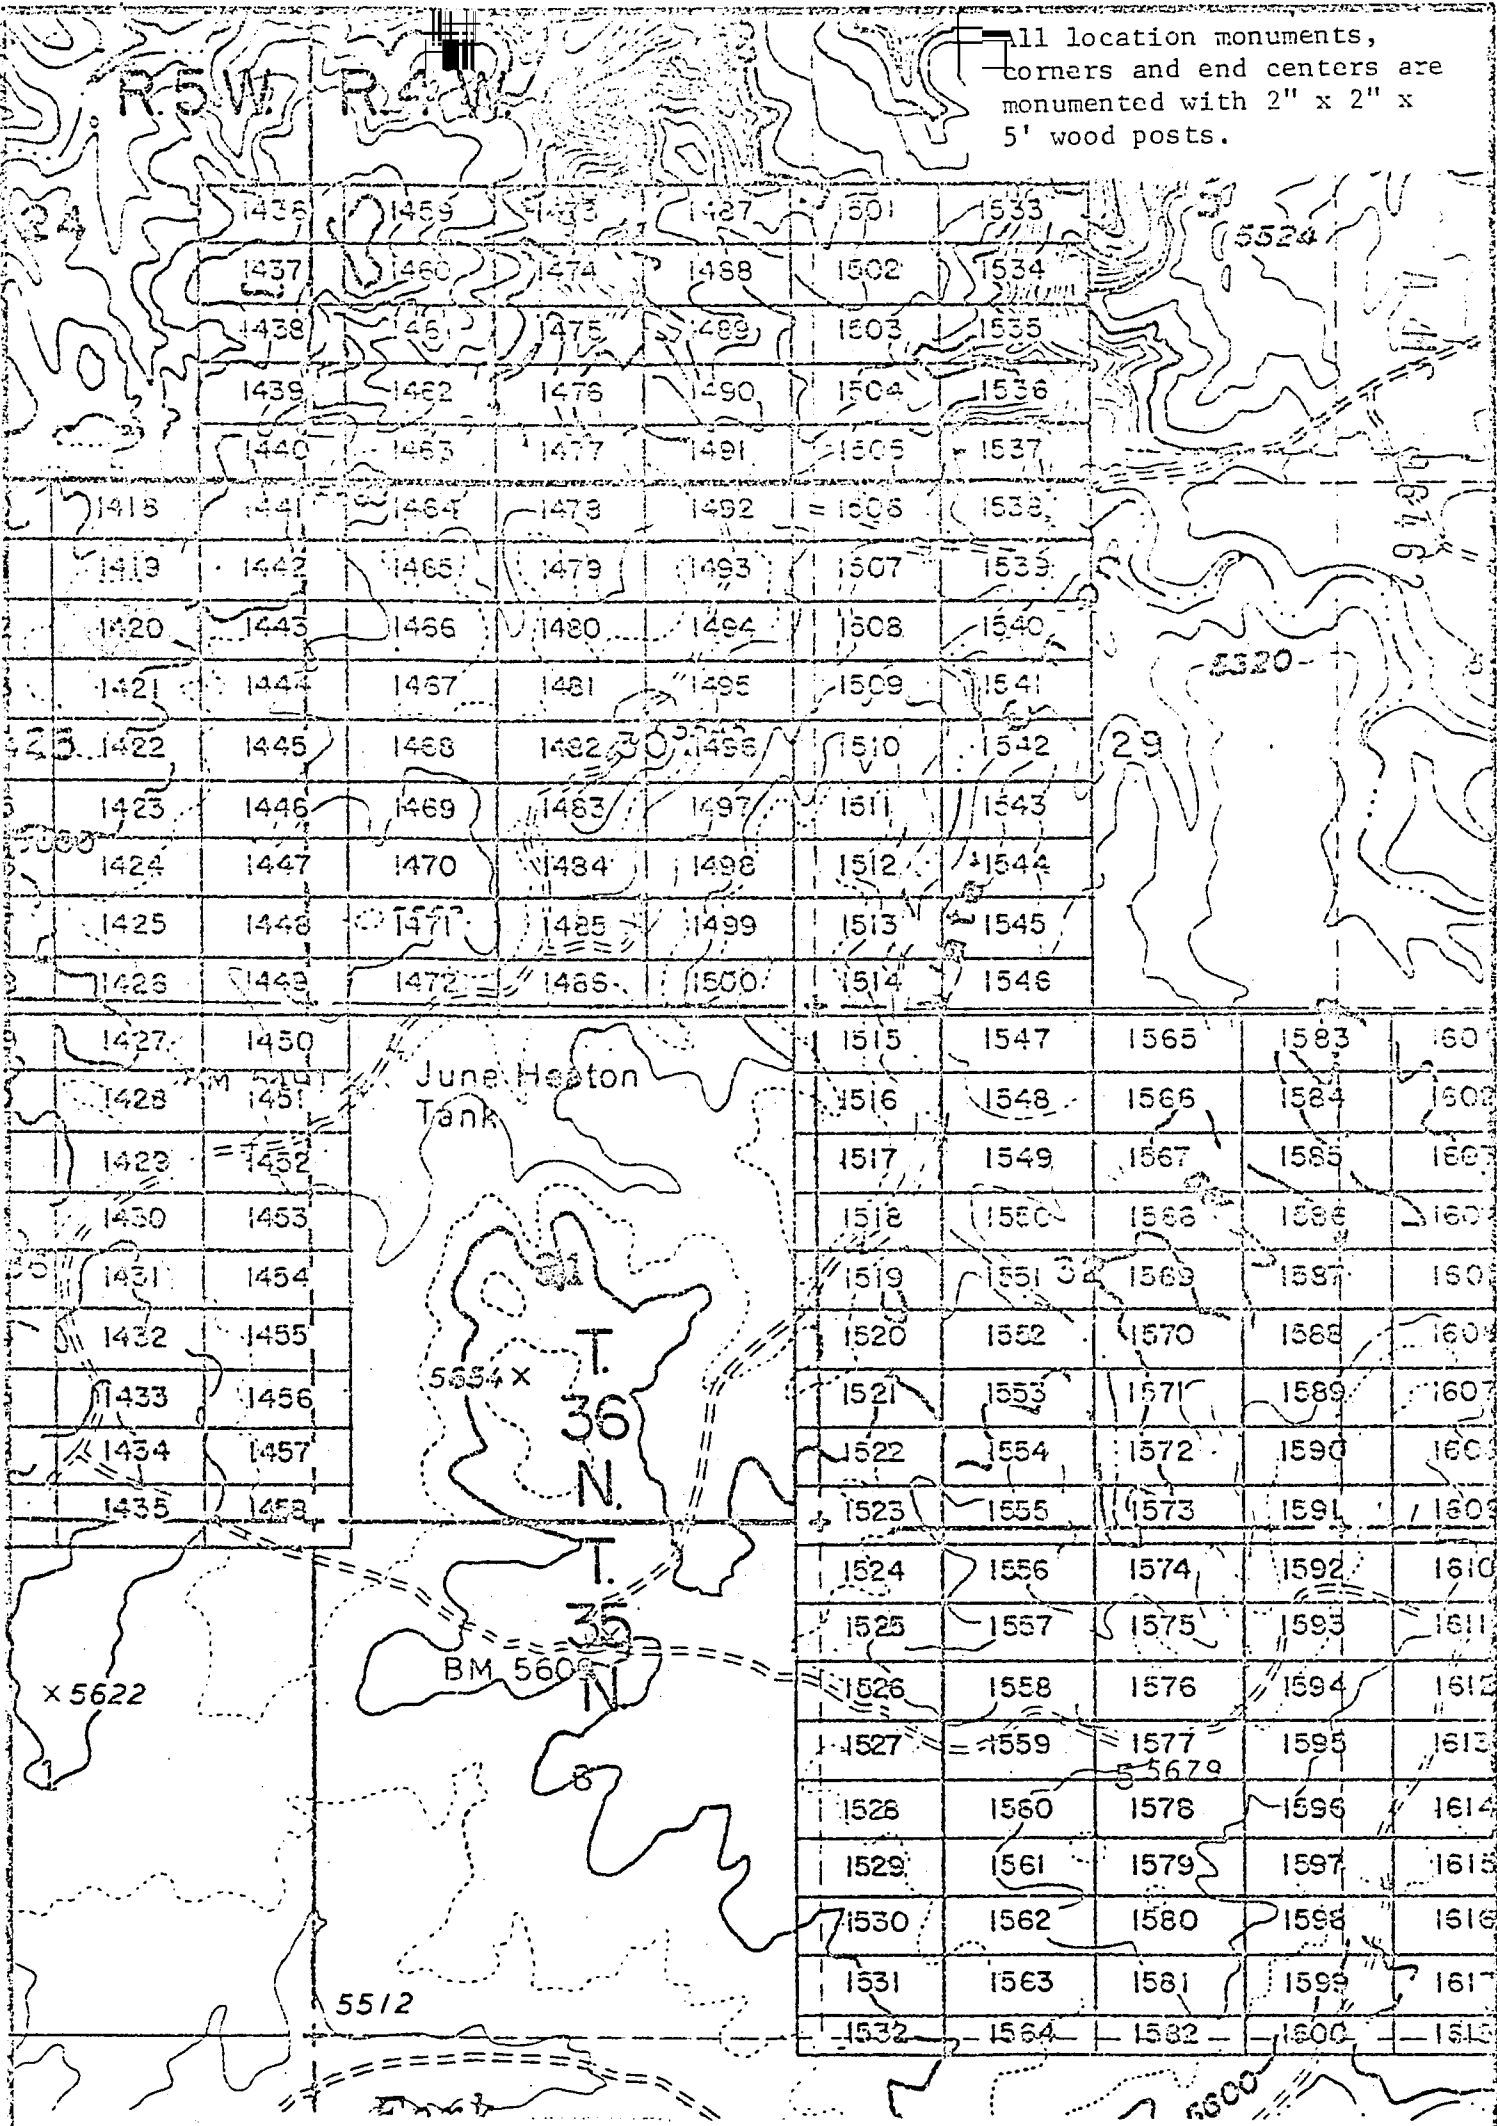 All location monuments,
corners and end centers are
monumented with 2" x 2" x
5' wood posts.
R. 5 W. R. 4 W.
24
1436 1459 1473 1487 1501 1533
5524
1437 1460 1474 1488 1502 1534
1438 1461 1475 1489 1503 1535
1439 1462 1476 1490 1504 1536
1440 1463 1477 1491 1505 1537
1418 1441 1464 1478 1492 1506 1538
1419 1442 1465 1479 1493 1507 1539
1420 1443 1466 1480 1494 1508 1540
5320
1421 1444 1467 1481 1495 1509 1541
1422 1445 1468 1482 30 1496 1510 1542 29
1423 1446 1469 1483 1497 1511 1543
1424 1447 1470 1484 1498 1512 1544
1425 1448 1471 1485 1499 1513 1545
1426 1449 1472 1486 1500 1514 1546
1427 1450 1515 1547 1565 1583
June Heaton
Tank
1428 1451 1516 1548 1566 1584 1602
1429 1452 1517 1549 1567 1585
1430 1453 1518 1550 1568 1586
31
1431 1454 1519 1551 32 1569 1587
1432 1455 1520 1552 1570 1588
T.
36
N.
5634 ×
1433 1456 1521 1553 1571 1589 1607
1434 1457 1522 1554 1572 1590
1435 1458 1523 1555 1573 1591 1609
T.
35
N
1524 1556 1574 1592 1610
1525 1557 1575 1593 1611
BM 560
× 5622
1526 1558 1576 1594 1612
1527 1559 1577 1595 1613
5 5679
1
6
1528 1560 1578 1596 1614
1529 1561 1579 1597 1615
1530 1562 1580 1598 1616
1531 1563 1581 1599 1617
5512
1532 1564 1582 1600
5600